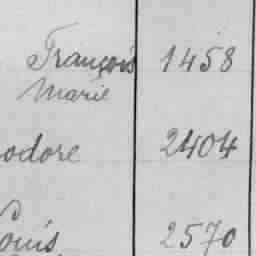 François 1458
Marie
odore 2404
Louis 2570